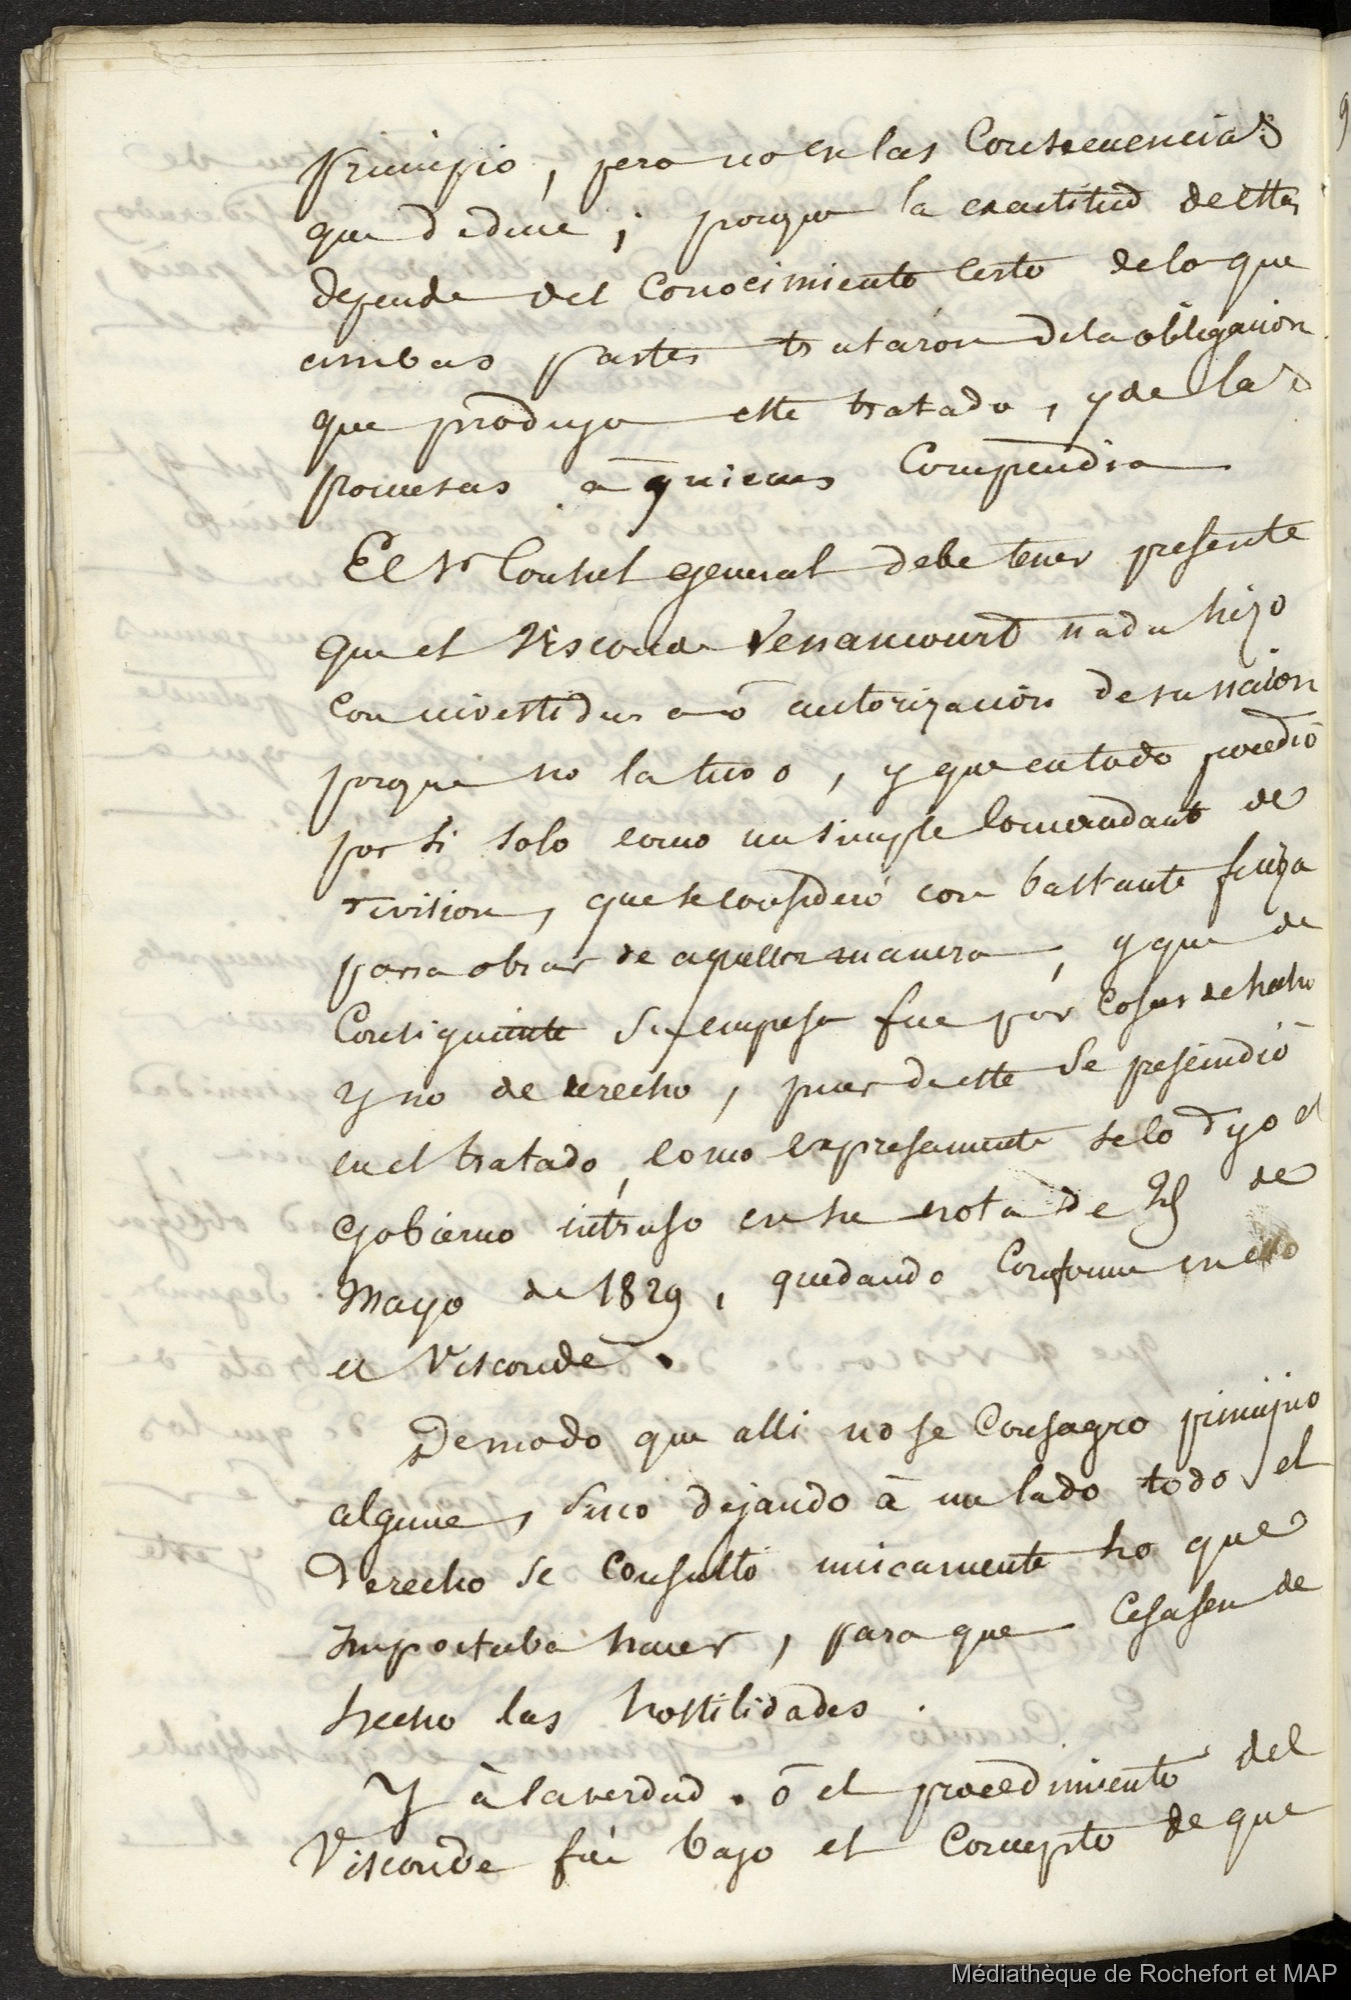 principio, pero no en las Consecuencias
que deduce; porque la exactitud de ettas
depende del Conocimiento Certo de lo que
ambas partes trataron de la obligacion
que produjo ette tratado, y de las
pomesas a quienes Compendia
El Sr Consul general debe tener presente
que el Visconde Venancourt nada hizo
con investidura ó autorizacion de su nacion
porque no la tuvo, y que en todo procedió
por si solo como un simple Comandante de
division, que se consideró con bastante fuerza
para obrar de aquella manera, y que de
Consiguiente su empesa fue por Cosas de hecho
y no de derecho, pues de ette se presindió
en el tratado, como expresamente se lo dijo el
Gobierno intruso en su nota de 28 de
Mayo de 1829, quedando Conforme en ello
el Visconde.
De modo que alli no se Consagro principio
alguno, sino dejando à un lado todo el
derecho se consultó unicamente lo que
Importaba hacer, para que Cesasen de
hecho las hostilidades.
Y à la verdad. ó el procedimiento del
Visconde fué bajo el Concepto de que
Médiathèque de Rochefort et MAP